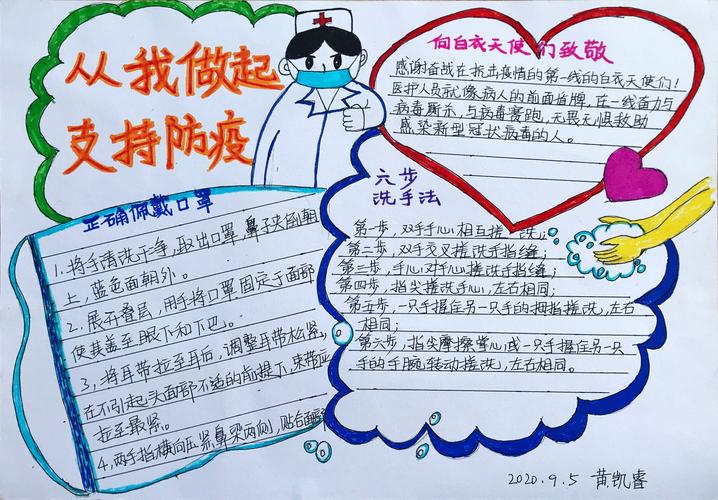 从我做起
支持防疫
向白衣天使们致敬
感谢奋战在抗击疫情的第一线的白衣天使们！
医护人员就像病人的前面盾牌，在一线奋力与
病毒厮杀，与病毒赛跑，无畏无惧救助
感染新型冠状病毒的人。
正确佩戴口罩
1.将手清洗干净，取出口罩，鼻子夹侧朝
上，蓝色面朝外。
2.展开叠层，用手将口罩固定于面部
使其盖至眼下和下巴。
3，将耳带拉至耳后，调整耳带松紧，
在不引起头面部不适的前提下，束带应
拉至最紧。
4，两手指横向压紧鼻梁两侧，贴合面部
六步
洗手法
第一步，双手手心相互搓洗；
第二步，双手交叉搓洗手指缝；
第三步，手心对手心搓洗手指缝；
第四步，指尖搓洗手心，左右相同；
第五步，一只手握住另一只手的拇指搓洗，左右
相同；
第六步，指尖摩擦掌心或一只手握住另一只
手的手腕转动搓洗，左右相同。
2020.9.5 黄凯睿